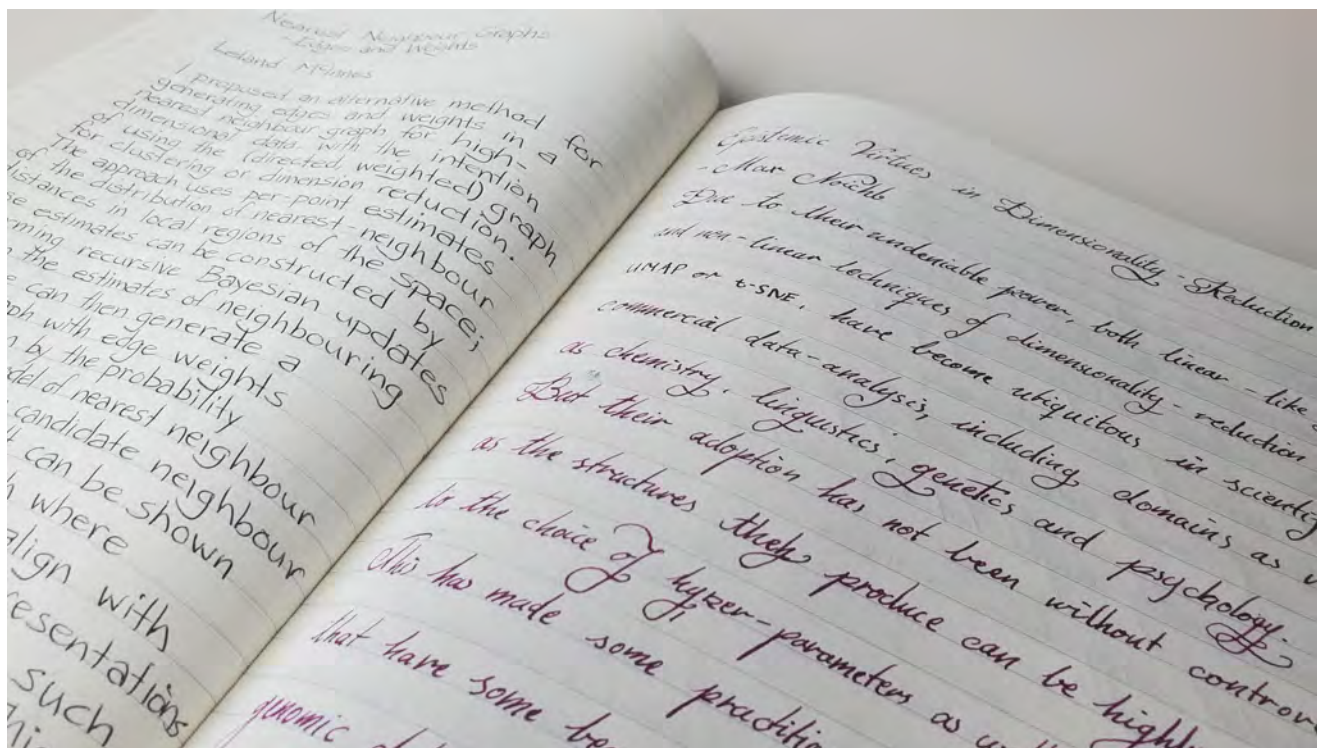 Nearest Neighbour Graphs
- Edges and Weights
Leland McInnes
I proposed an alternative method for
generating edges and weights in a
nearest neighbour graph for high-
dimensional data with the intention
of using the (directed, weighted) graph
for clustering or dimension reduction.
The approach uses per-point estimates
of the distribution of nearest neighbour
distances in local regions of the space;
estimates can be constructed by
recursive Bayesian updates
the estimates of neighbouring
can then generate a
with edge weights
by the probability
of nearest neighbour
candidate neighbour
can be shown
where
align with
such
Epistemic Virtues in Dimensionality-Reduction
- Max Noichl
Due to their undeniable power, both linear - like
and non-linear techniques of dimensionality-reduction
UMAP or t-SNE, have become ubiquitous in
commercial data-analysis, including domains as
as chemistry, linguistics, genetics and psychology.
But their adoption has not been without
as the structures they produce can be
to the choice of hyper-parameters as
This has made some
that have some
genomic